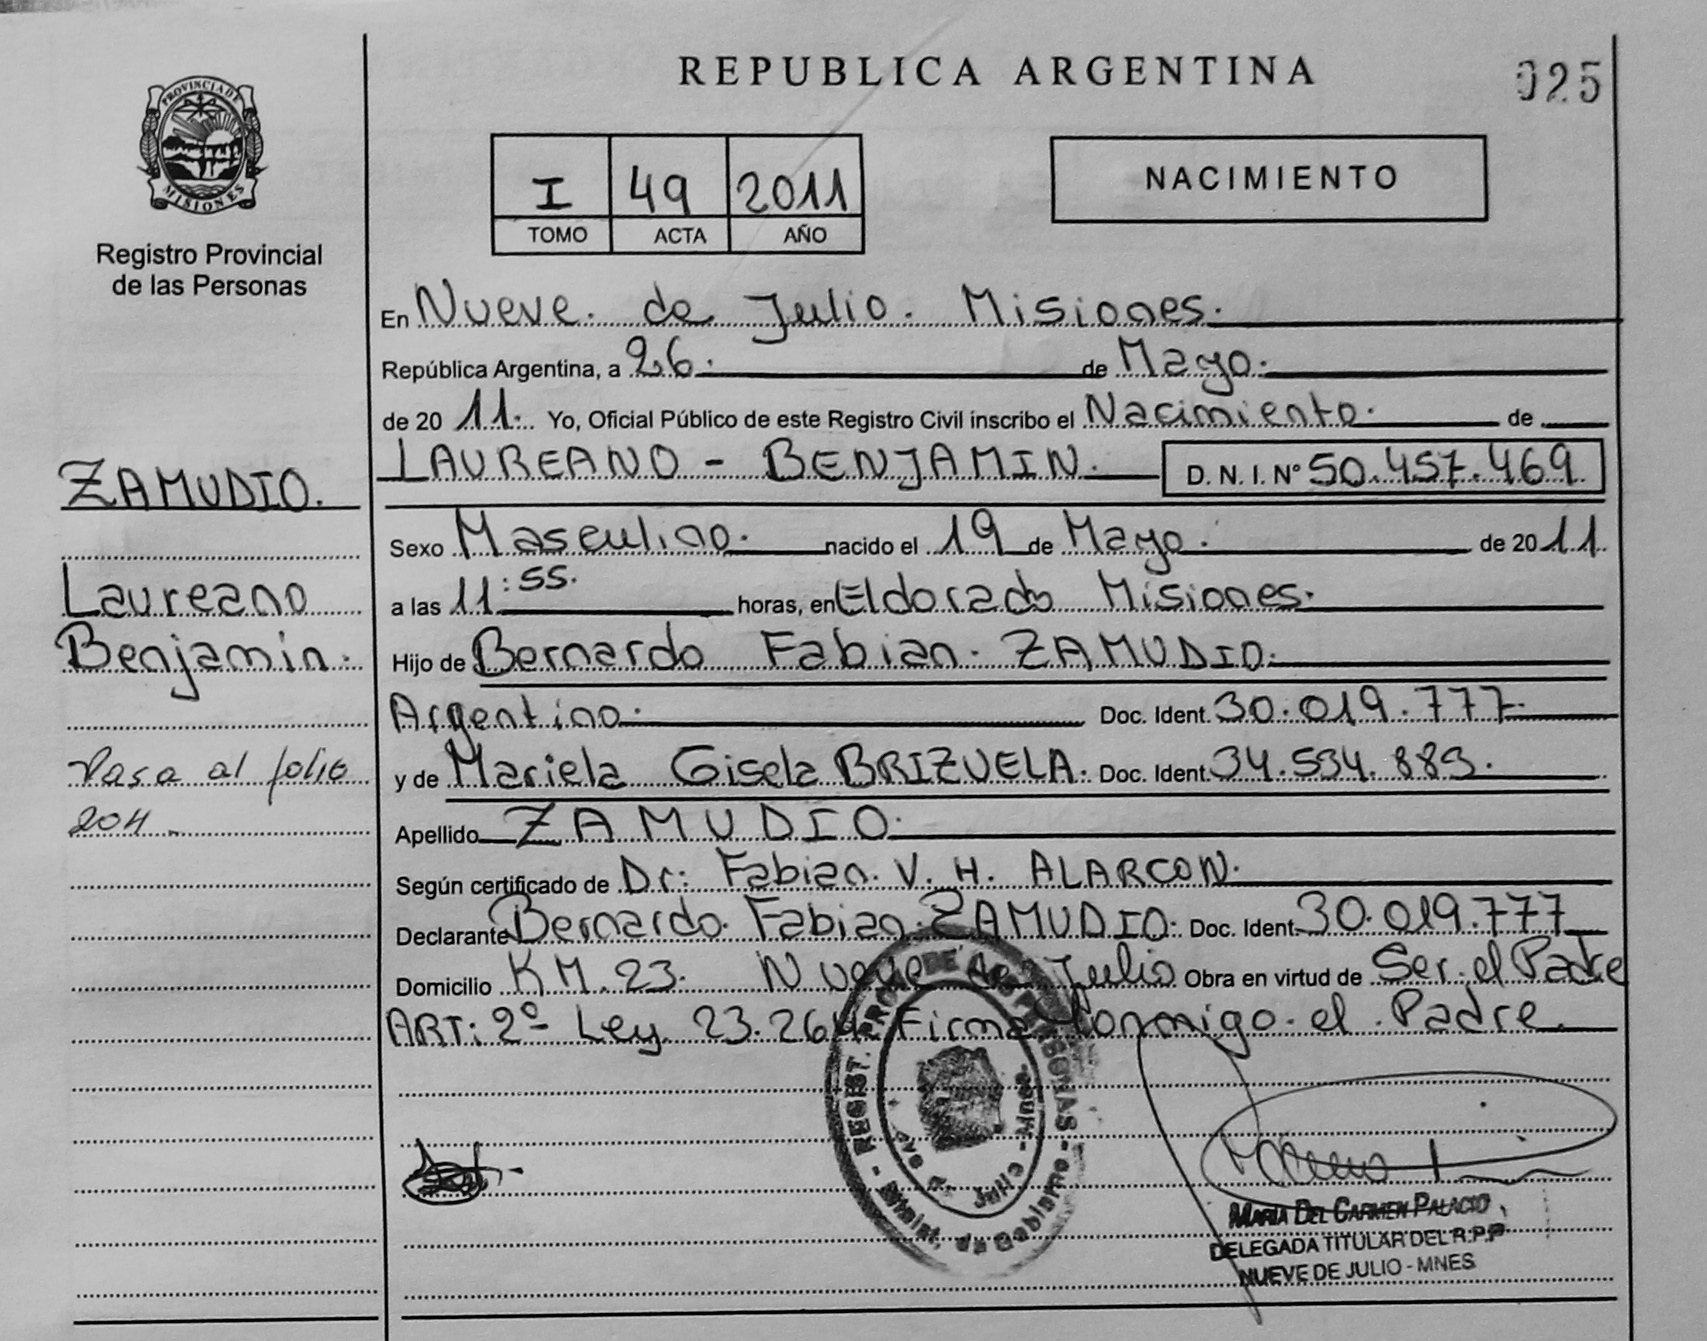 REPUBLICA ARGENTINA
025
PROVINCIA DE MISIONES
Registro Provincial
de las Personas
I 49 2011
TOMO ACTA AÑO
NACIMIENTO
En Nueve. de Julio. Misiones.
República Argentina, a 26. de Mayo.
de 20 11. Yo, Oficial Público de este Registro Civil inscribo el Nacimiento. de
LAUREANO - BENJAMIN. D. N. I. Nº 50.457.469
ZAMUDIO.
Sexo Masculino. nacido el 19 de Mayo. de 20 11.
Laureano
a las 11:55. horas, en Eldorado Misiones.
Benjamin.
Hijo de Bernardo Fabian. ZAMUDIO.
Argentino. Doc. Ident. 30.019.777
Pasa al folio
y de Mariela Gisela BRIZUELA. Doc. Ident. 34.534.883.
204.
Apellido ZAMUDIO.
Según certificado de Dr: Fabian. V. H. ALARCON.
Declarante Bernardo Fabian. ZAMUDIO. Doc. Ident. 30.019.777
Domicilio KM. 23. Nueve de Julio Obra en virtud de Ser. el Padre
ART: 2º Ley. 23.264 Firma Conmigo. el. Padre.
REGIST. PROV. DE LAS PERSONAS
Minist. de Gobierno
Julio - Mnes.
MARIA DEL CARMEN PALACIO
DELEGADA TITULAR DEL R.P.P
NUEVE DE JULIO - MNES